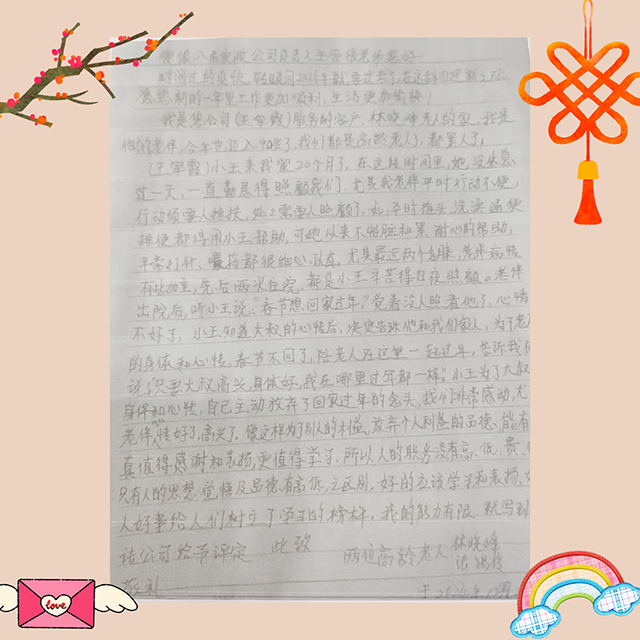 政公司负责人主管领老师您好:
时间过的真快,转眼间2024年就要过去了,在这辞旧迎新之际,
愿您新的一年里工作更加顺利,生活更加愉快!
我是您公司(王军霞)服务的客户 林晓峰老人的家 我是
他的老伴,今年也迈入90岁了,我们都是高龄老人了,都累人了,
(王军霞)小王来我家20个月了,在这段时间里,她没休息
过一天,一直勤恳得照顾我们,尤其我老伴平时行动不便,
行动须要人搀扶,处处需要人照顾了,如,平时梳头,洗澡 涵便
排便都得用小王帮助,可她从来不怕脏和累 耐心的帮助,
平常打针、喂药都很细心认真,尤其最近两个多月,老伴病情
有些加重,先后两次住院,都是小王辛苦得日夜照顾。老伴
出院后,听小王说:“春节想回家过年,”觉着没人照看他了,心情
不好了,小王知道大叔的心情后,决定告诉他和我们家人,为了老
的身体和心情,春节不回了,陪老人在这里一起过年,告诉我们
说:“只要大叔高兴,身体好,我在哪里过年都一样。”小王为了大叔
身体和心情,自己主动放弃了回家过年的念头,我们非常感动,尤
老伴心情好了,高兴了,像这样为了别人的利益,放弃个人利益的品德,能有
真值得感谢和表扬,更值得学习,所以人的职务没有高、低、贵、
只有人的思想、觉悟及品德有高低之区别,好的应该学习和表扬,
人好事给人们树立了学习的榜样,我的能力有限,就写到
请公司给予评定 此致 两位高龄老人 林晓峰
敬礼
于2024年12月
love